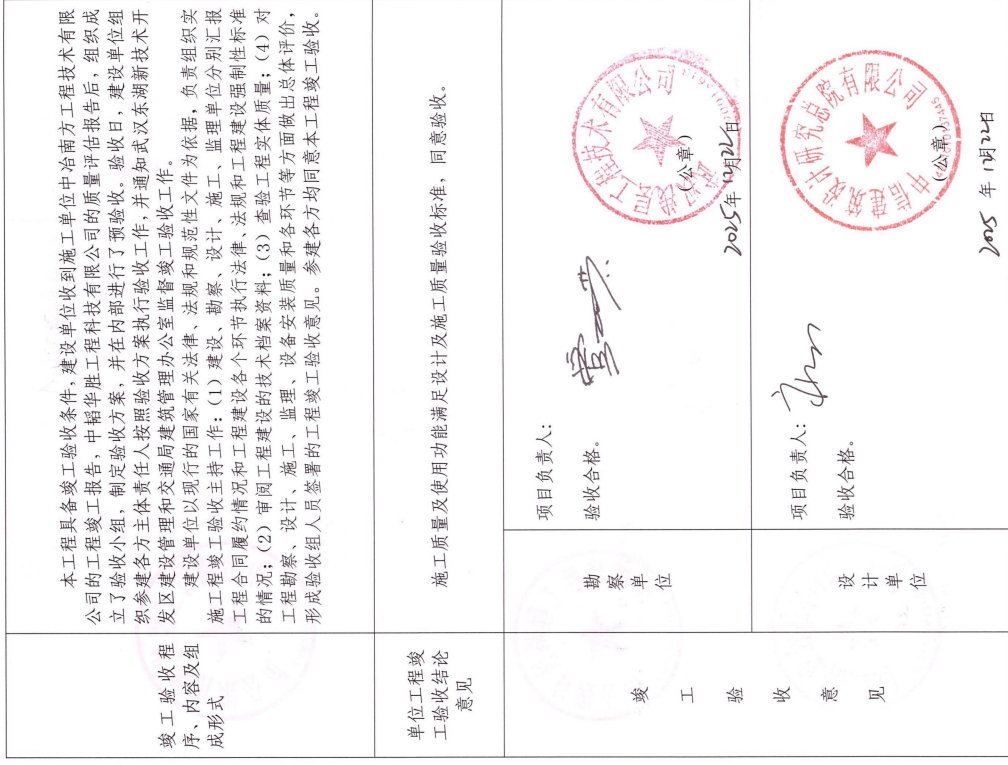 竣工验收程
序、内容及组
成形式
本工程具备竣工验收条件，建设单位收到施工单位中冶南方工程技术有限
公司的工程竣工报告，中韬华胜工程科技有限公司的质量评估报告后，组织成
立了验收小组，制定验收方案，并在内部进行了预验收。验收日，建设单位组
织参建各方主体责任人按照验收方案执行验收工作，并通知武汉东湖新技术开
发区建设管理和交通局建筑管理办公室监督竣工验收工作。
建设单位以现行的国家有关法律、法规和规范性文件为依据，负责组织实
施工程竣工验收主持工作：（1）建设、勘察、设计、施工、监理单位分别汇报
工程合同履约情况和工程建设各个环节执行法律、法规和工程建设强制性标准
的情况；（2）审阅工程建设的技术档案资料；（3）查验工程实体质量；（4）对
工程勘察、设计、施工、监理、设备安装质量和各环节等方面做出总体评价，
形成验收组人员签署的工程竣工验收意见。参建各方均同意本工程竣工验收。
单位工程竣
工验收结论
意见
施工质量及使用功能满足设计及施工质量验收标准，同意验收。
竣
工
验
收
意
见
勘察
单位
项目负责人：
验收合格。
工程技术有限公司
（公章）
2025年12月22日
设计
单位
项目负责人：
验收合格。
中信建筑设计研究总院有限公司
（公章）
2025 年 12月22日